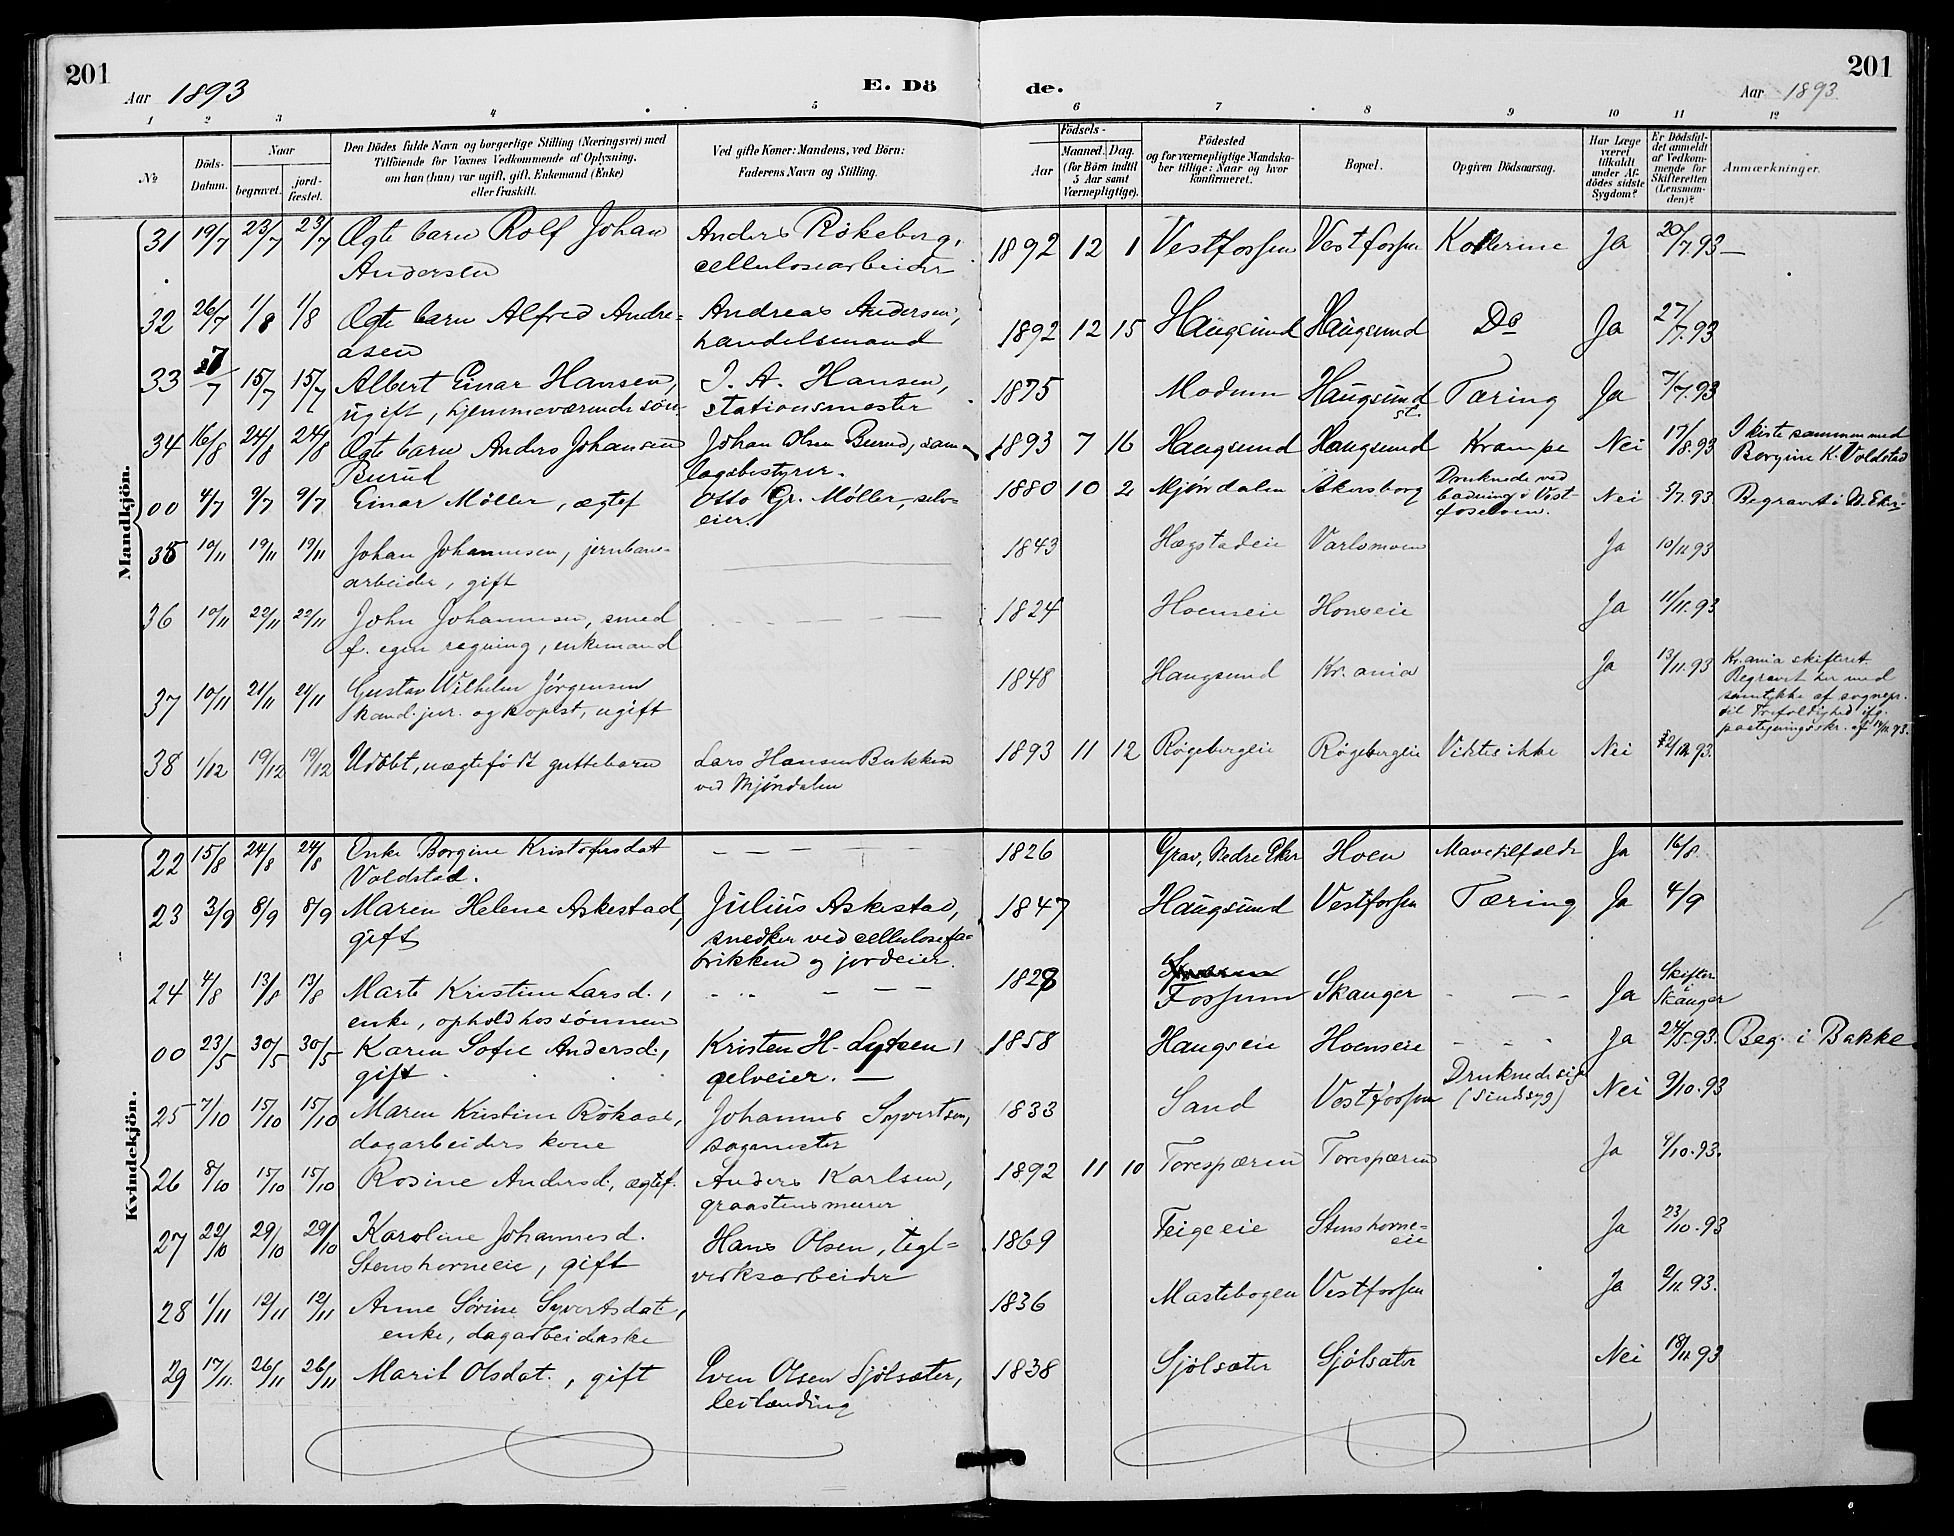 201
Aar 1893
E. Dö
de.
Aar 1893
201
1 2 3 4 5 6 7 8 9 10 11 12
№
Döds-Datum.
Naar
begravet.
jord-fæstet.
Den Dödes fulde Navn og borgerlige Stilling (Næringsvei) med
Tilföiende for Voxnes Vedkommende af Oplysning,
om han (hun) var ugift, gift, Enkemand (Enke)
eller fraskilt.
Ved gifte Koner: Mandens, ved Börn:
Faderens Navn og Stilling.
Födsels-
Aar
Maaned. Dag.
(for Börn indtil
5 Aar samt
Værnepligtige).
Födested
og for værnepligtige Mandska-
ber tillige: Naar og hvor
konfirmeret.
Bopæl.
Opgiven Dödsaarsag.
Har Læge
været
tilkaldt
under Af-
dödes sidste
Sygdom?
Er Dödsfal-
det anmeldt
af Vedkom-
mende for
Skifteretten
(Lensman-
den)?
Anmærkninger.
Mandkjön.
31 19/7 23/7 23/7 Ægte barn Rolf Johan Andersen Anders Rökeberg, cellulosearbeider 1892 12 1 Vestfossen Vestfossen Kollerine Ja 20/7.93 —
32 26/7 1/8 1/8 Ægte barn Alfred Andreasen Andreas Andersen, handelsmand 1892 12 15 Haugsund Haugsund Do Ja 27/7.93
33 7/7 15/7 15/7 Albert Einar Hansen, ugift, hjemmeværende søn J. A. Hansen, stationsmester 1875 Modum Haugsund st. Tæring Ja 7/7.93
34 16/8 24/8 24/8 Ægte barn Anders Johansen Burud Johan Olsen Burud, samlagsbestyrer. 1893 7 16 Haugsund Haugsund Krampe Nei 17/8.93 I kiste sammen med Borgine K. Voldstad
00 4/7 9/7 9/7 Einar Möller, ægtef Otto Gr. Møller, selveier. 1880 10 2 Mjöndalen Akersborg Druknede ved badning i Vestfoselven. Nei 5/7.93 Begravet i N. Eker
35 10/11 19/11 19/11 Johan Johannesen, jernbanearbeider, gift 1843 Hægstadeie Varlsmoen Ja 10/11.93
36 10/11 22/11 22/11 John Johannesen, smed f. egen regning, enkemand 1824 Hoenseie Honseie Ja 11/11.93
37 10/11 21/11 21/11 Gustav Wilhelm Jörgensen kand. jur. og kopist, ugift 1848 Haugsund Kr.ania Ja 13/11.93 Kr.ania skifteret. Begravet her med samtykke af sognepr. til Trefoldighed ifg. paategningsskr. af 14/11 93.
38 1/12 19/12 19/12 Udöbt, uægtefödt guttebarn Lars Hansen Bukken ved Mjöndalen 1893 11 12 Røgebergeie Røgebergeie Vidstes ikke Nei 2/12.93.
Kvindekjön.
22 15/8 24/8 24/8 Enke Borgine Kristofersdat Voldstad. — — — — 1826 Grav, Nedre Eker Hoen Mavetilfælde Ja 16/8
23 3/9 8/9 8/9 Maren Helene Askestad, gift Julius Askestad, snedker ved cellulosefabrikken og jordeier. 1847 Haugsund Vestfossen Tæring Ja 4/9
24 4/8 13/8 13/8 Marte Kristine Larsd., enke, ophold hos sønnen 1828 Fossum Skanger Ja Skifter i Skanger
00 23/5 30/5 30/5 Karen Sofie Andersd., gift Kristen H. Lytsen, selveier. — 1858 Haugseie Hoenseie Ja 24/5.93. Beg. i Bakke
25 7/10 15/10 15/10 Maren Kristine Rökaas, dagarbeiders kone Johannes Syvertsen, sagmester 1833 Sand Vestfossen Druknede sig (sindssyg) Nei 9/10.93
26 8/10 15/10 15/10 Rosine Andersd., ægtef. Anders Karlsen, graastensmurer 1892 11 10 Torespæren Torespæren Ja 9/10.93.
27 22/10 29/10 29/10 Karoline Johannesd. Stenshorneeie, gift Hans Olsen, teglverksarbeider 1869 Teigeeie Stenshorneeie Ja 23/10.93
28 1/11 12/11 12/11 Anne Sörine Syvertsdat, enke, dagarbeiderske 1836 Mastebogen Vestfossen Ja 2/11.93.
29 17/11 26/11 26/11 Marit Olsdat., gift Even Olsen Sjölsæter, leilænding 1838 Sjölsæter Sjölsæter Nei 18/11.93